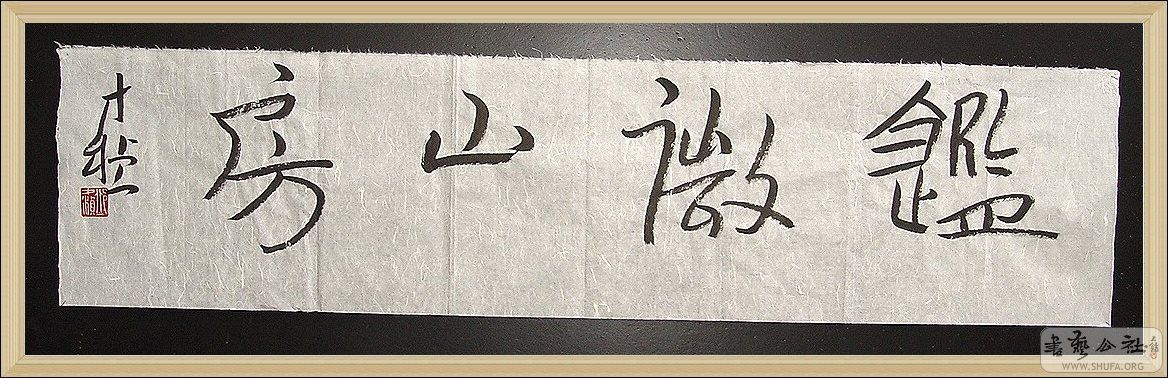 鑑微山房
書藝公社
WWW.SHUFA.ORG